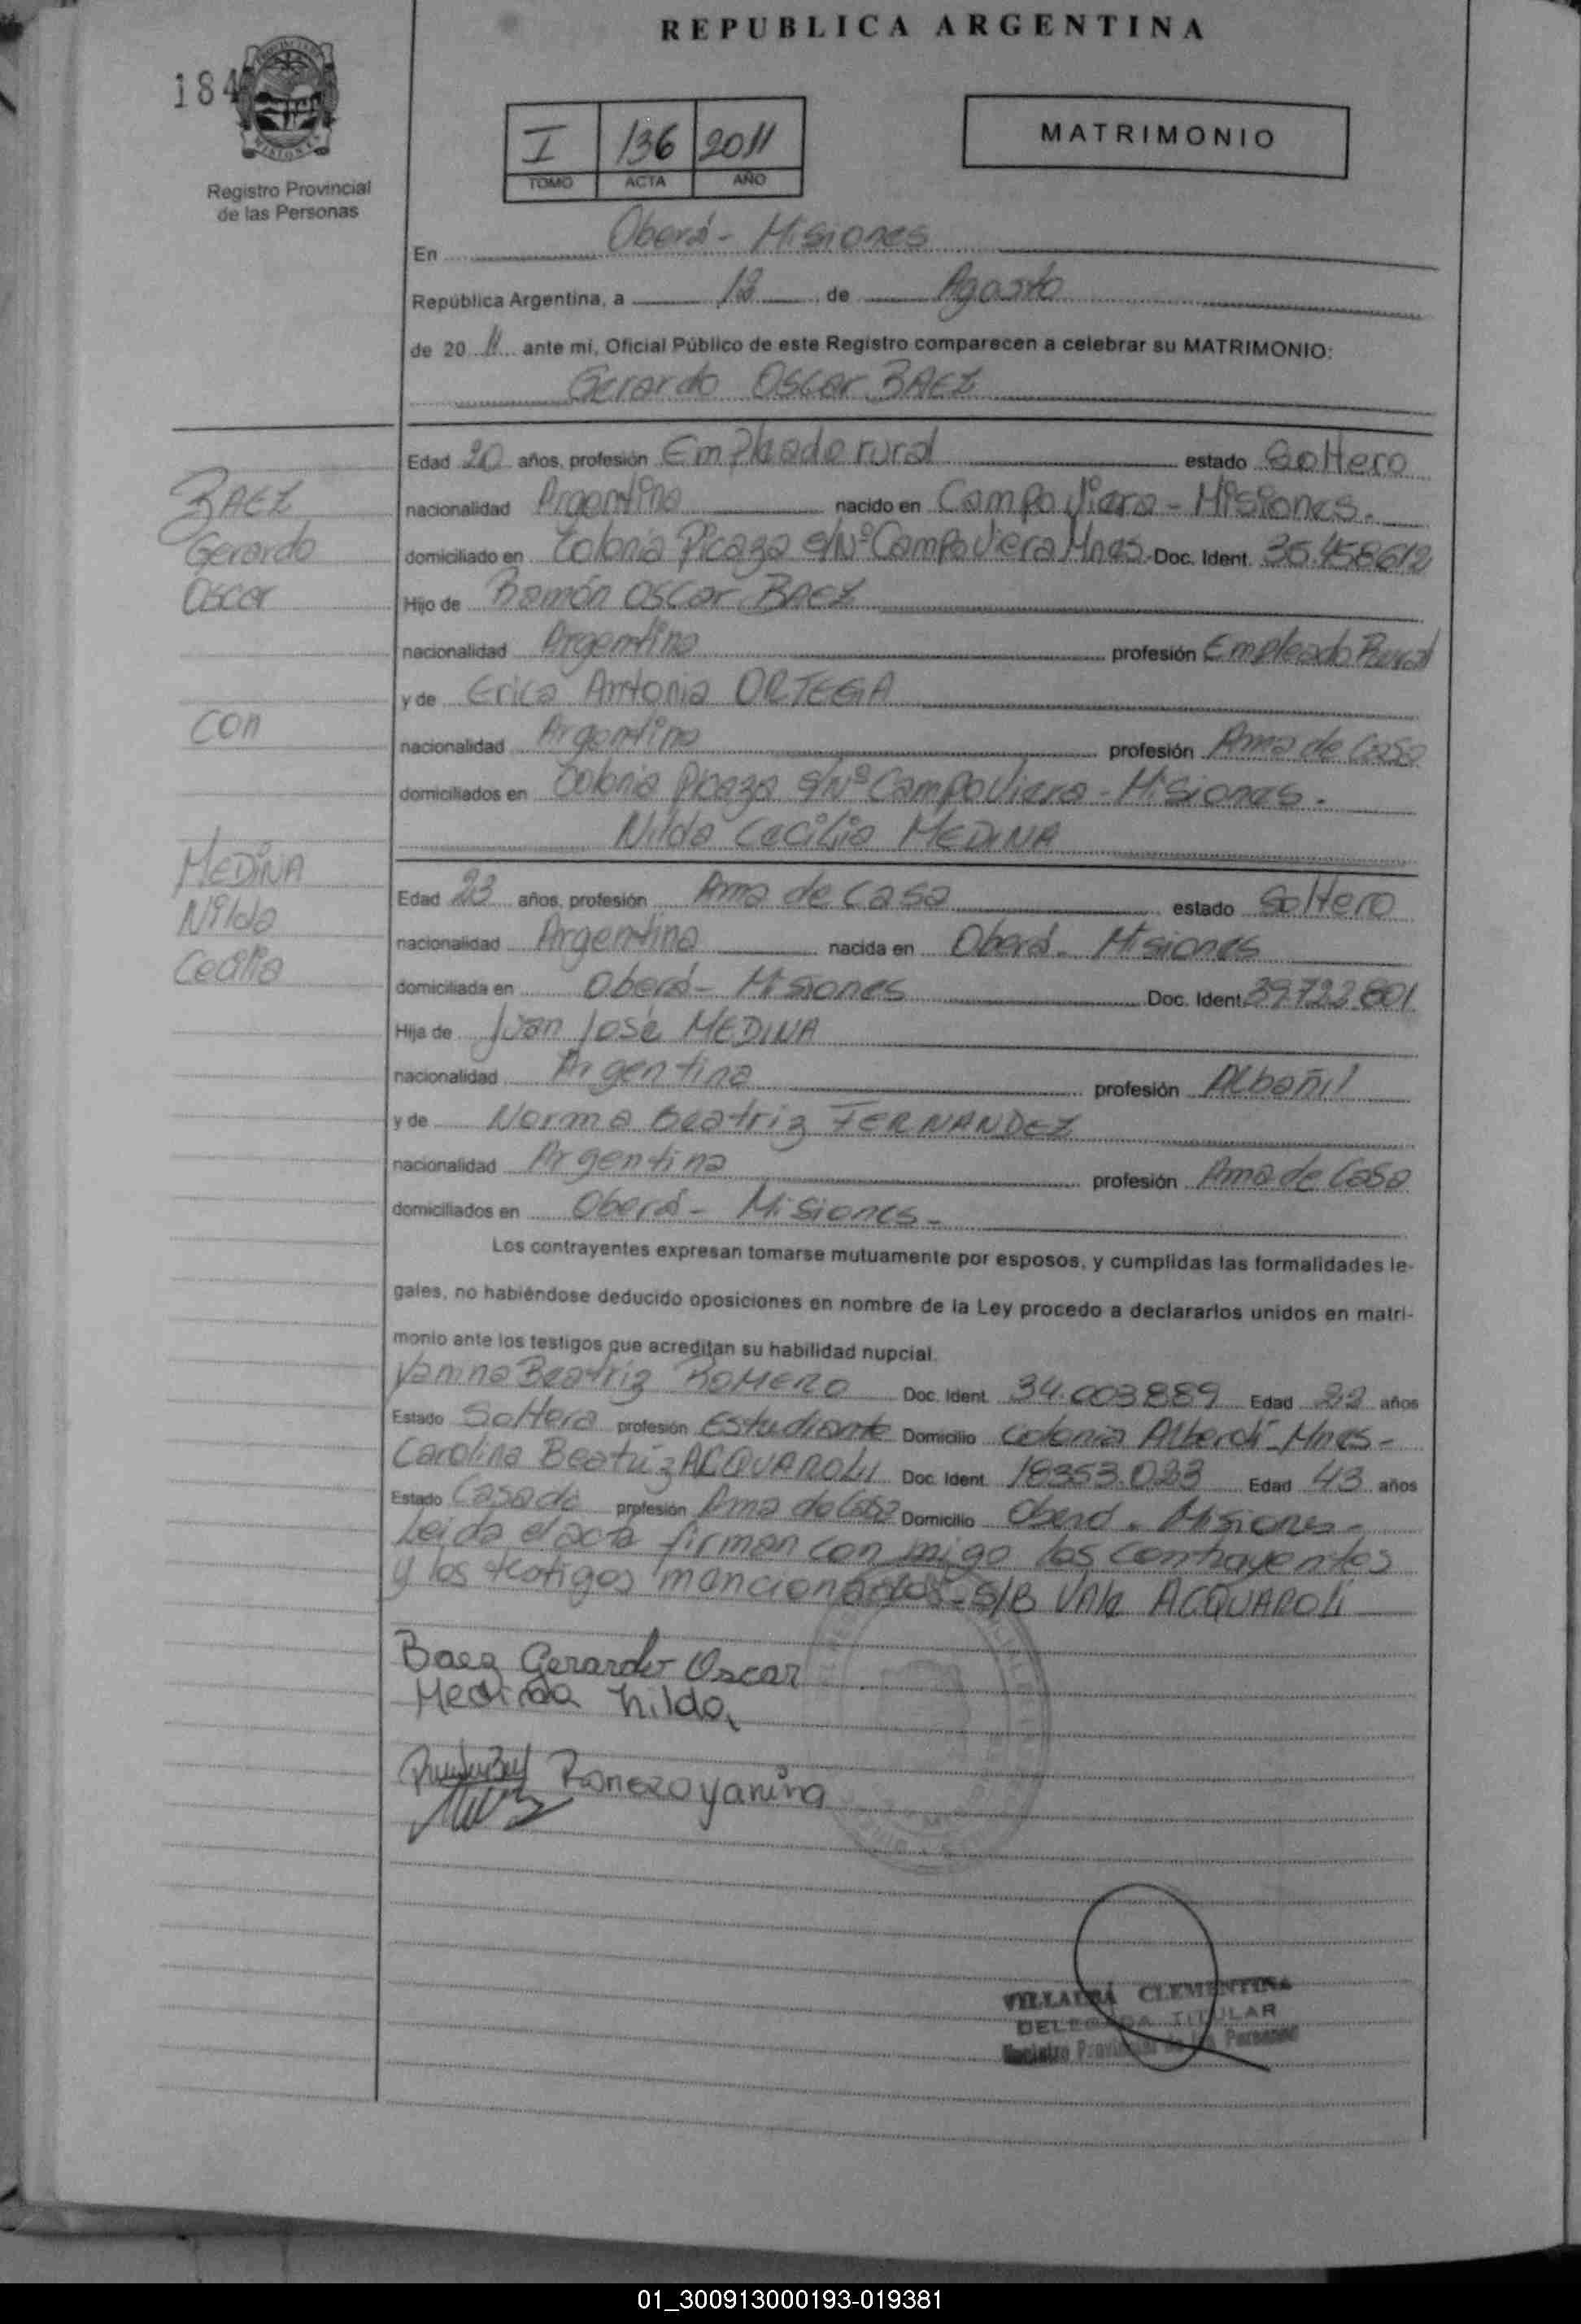 REPUBLICA ARGENTINA
184
Registro Provincial
de las Personas
I 136 2011
TOMO ACTA AÑO
MATRIMONIO
En Oberá - Misiones
República Argentina, a 12 de Agosto
de 20 11 ante mí, Oficial Público de este Registro comparecen a celebrar su MATRIMONIO:
Gerardo Oscar BAEZ
Edad 20 años, profesión Empleado rural estado Soltero
nacionalidad Argentina nacido en Campo Viera - Misiones.
domiciliado en Colonia Picaza S/Nº Campo Viera Mnes. Doc. Ident. 35.458612
Hijo de Ramón Oscar BAEZ
nacionalidad Argentina profesión Empleado Rural
y de Erica Antonia ORTEGA
nacionalidad Argentina profesión Ama de Casa
domiciliados en Colonia Picaza S/Nº Campo Viera - Misiones.
Nilda Cecilia MEDINA
Edad 23 años, profesión Ama de Casa estado Soltero
nacionalidad Argentina nacida en Oberá - Misiones
domiciliada en Oberá - Misiones Doc. Ident. 39.723.801
Hija de Juan José MEDINA
nacionalidad Argentina profesión Albañil
y de Norma Beatriz FERNANDEZ
nacionalidad Argentina profesión Ama de Casa
domiciliados en Oberá - Misiones -
BAEZ
Gerardo
Oscar
con
MEDINA
Nilda
Cecilia
Los contrayentes expresan tomarse mutuamente por esposos, y cumplidas las formalidades le-
gales, no habiéndose deducido oposiciones en nombre de la Ley procedo a declararlos unidos en matri-
monio ante los testigos que acreditan su habilidad nupcial.
Yanina Beatriz ROMERO Doc. Ident. 34.003.889 Edad 22 años
Estado Soltera profesión Estudiante Domicilio Colonia Alberdi - Mnes -
Carolina Beatriz ACQUAROLI Doc. Ident. 18353.023 Edad 43 años
Estado Casada profesión Ama de Casa Domicilio Oberá - Misiones -
Leida el acta firman con migo los contrayentes
y los testigos mencionados - S/B Vale ACQUAROLI
Baez Gerardo Oscar
Medina Nilda
Romero yanina
VILLALBA CLEMENTINA
DELEGADA TITULAR
Registro Provincial de las Personas
01_300913000193-019381